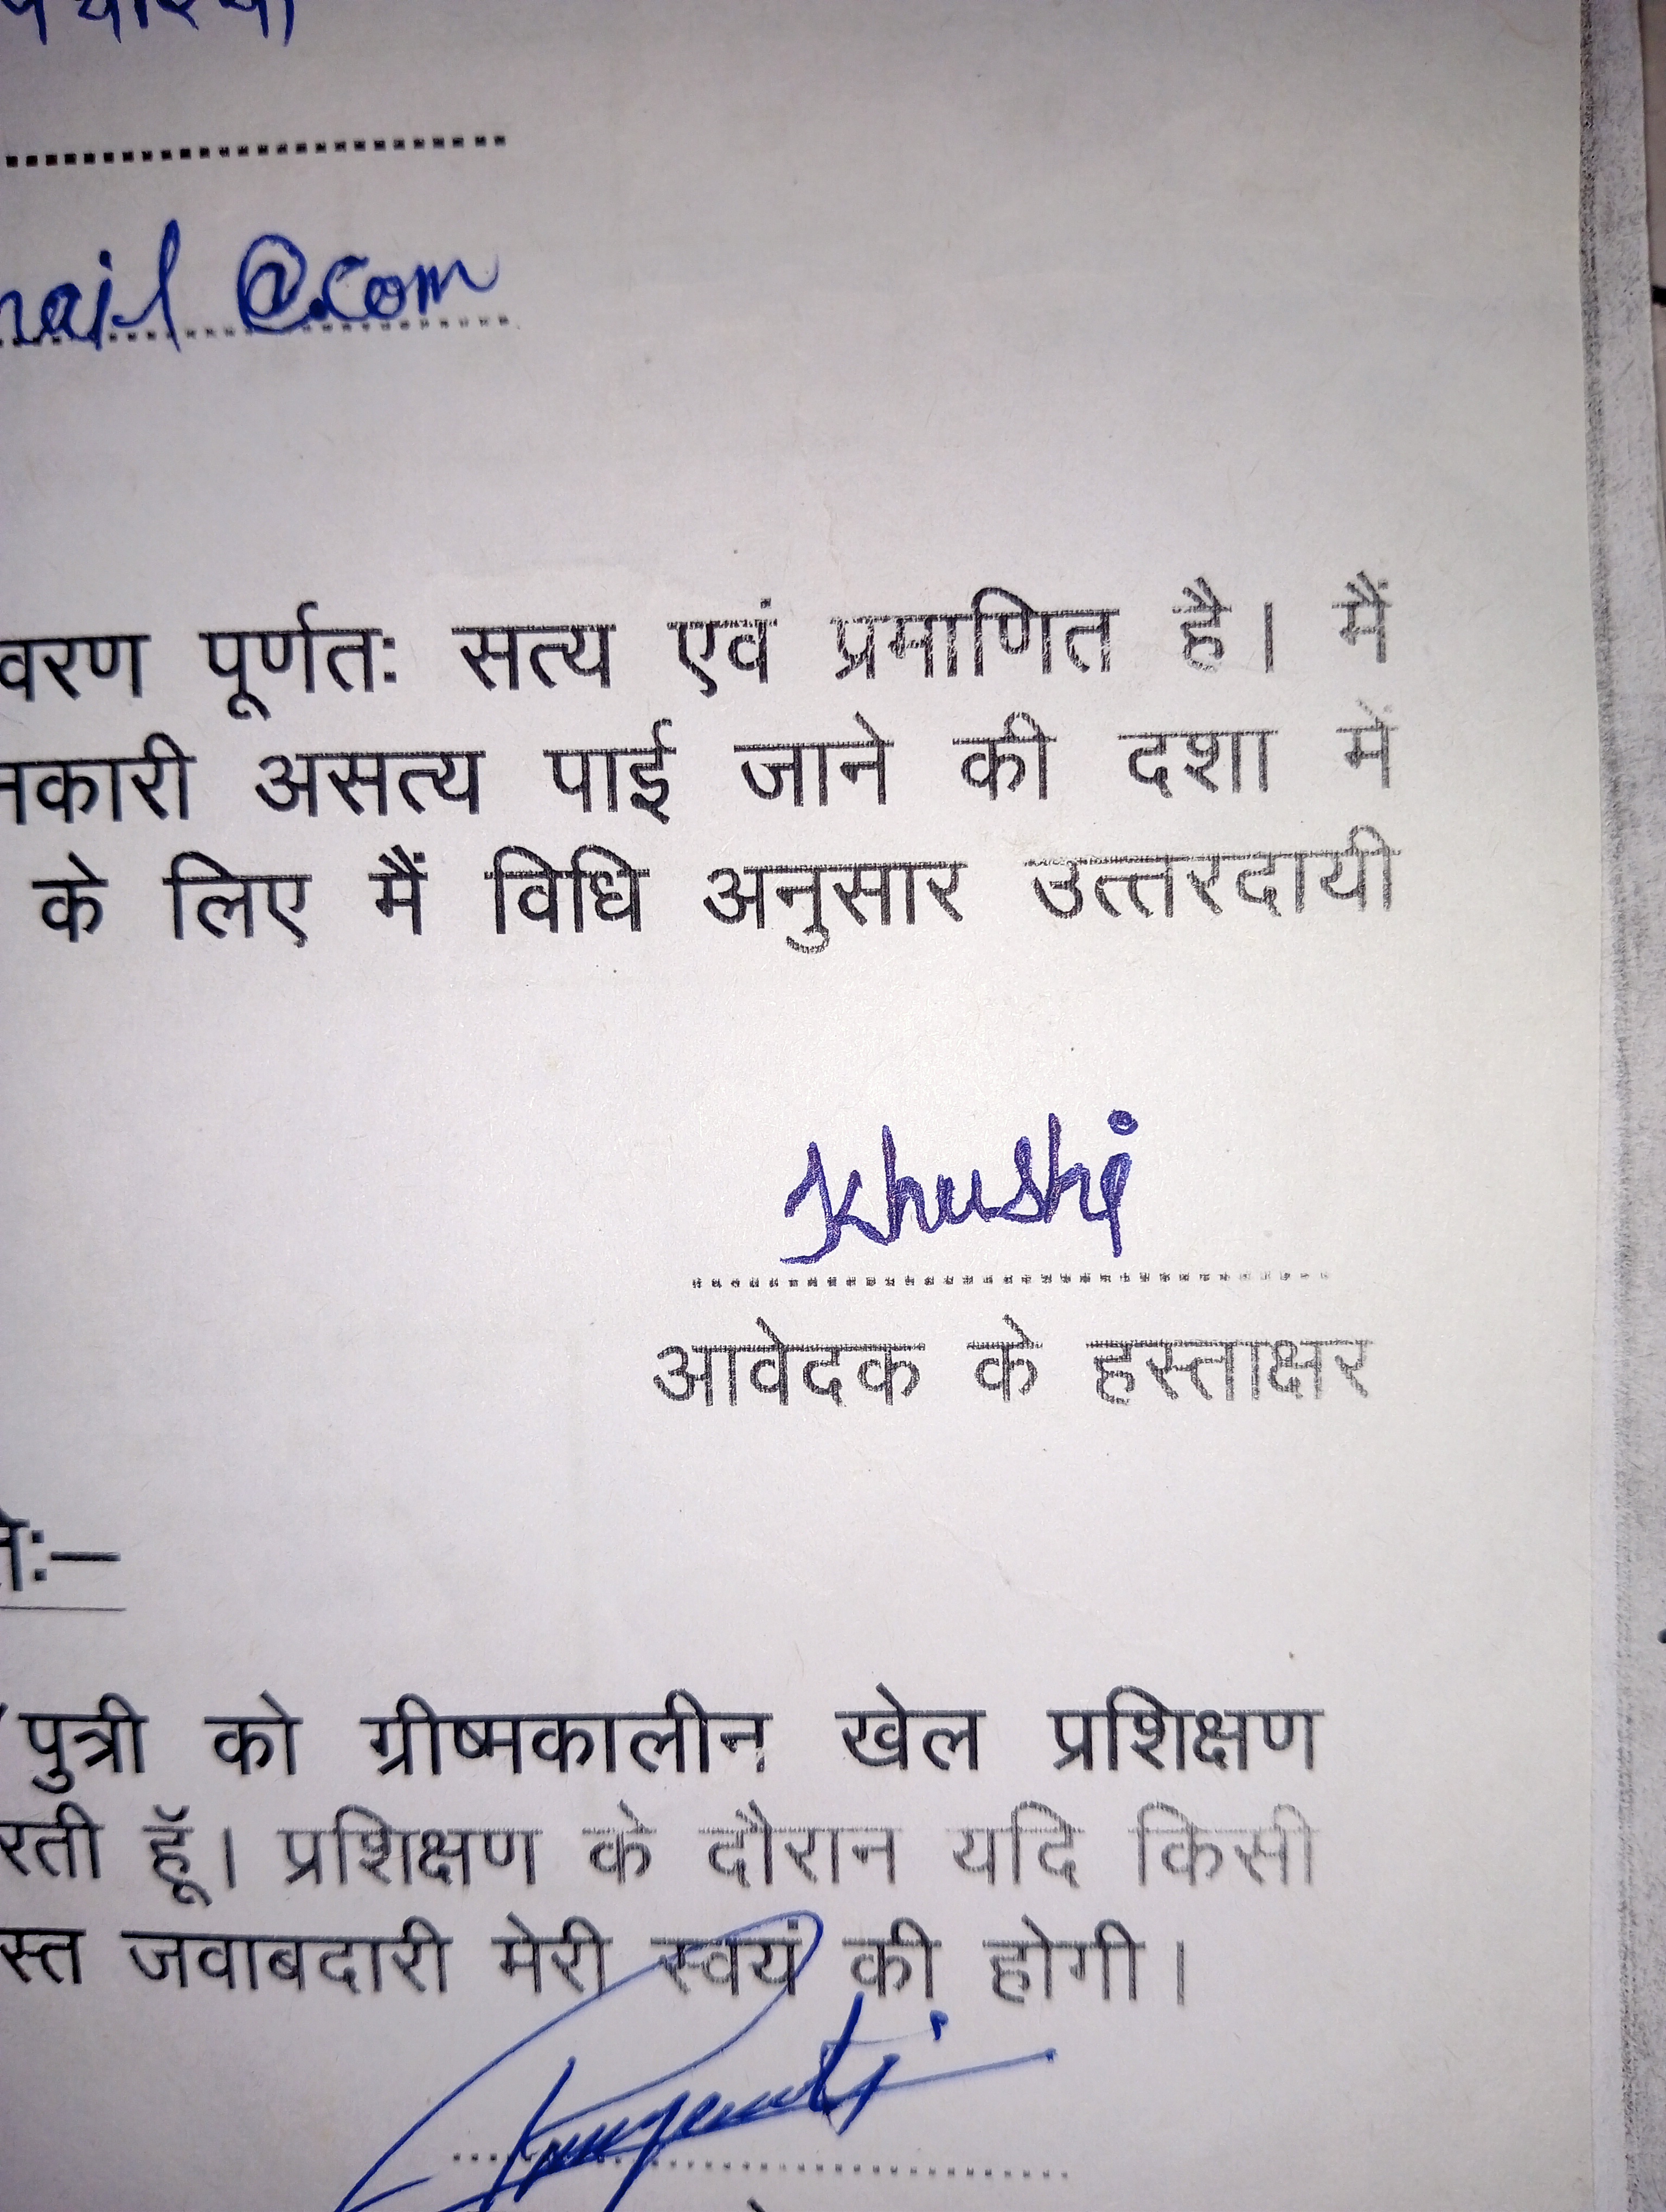 nail @.com
वरण पूर्णतः सत्य एवं प्रमाणित है। मैं
नकारी असत्य पाई जाने की दशा में
के लिए मैं विधि अनुसार उत्तरदायी
Khushi
आवेदक के हस्ताक्षर
पुत्री को ग्रीष्मकालीन खेल प्रशिक्षण
रती हूॅं। प्रशिक्षण के दौरान यदि किसी
स्त जवाबदारी मेरी स्वयं की होगी।